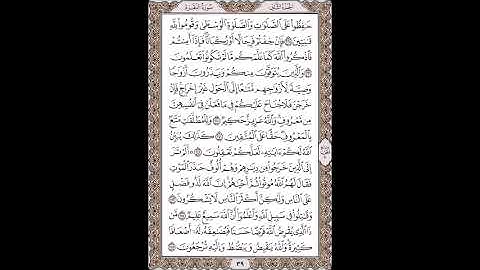 الجزء الثاني سورة البقرة
حَٰفِظُوا۟ عَلَى ٱلصَّلَوَٰتِ وَٱلصَّلَوٰةِ ٱلْوُسْطَىٰ وَقُومُوا۟ لِلَّهِ
قَٰنِتِينَ ٢٣٨ فَإِنْ خِفْتُمْ فَرِجَالًا أَوْ رُكْبَانًا فَإِذَآ أَمِنتُمْ
فَٱذْكُرُوا۟ ٱللَّهَ كَمَا عَلَّمَكُم مَّا لَمْ تَكُونُوا۟ تَعْلَمُونَ
٢٣٩ وَٱلَّذِينَ يُتَوَفَّوْنَ مِنكُمْ وَيَذَرُونَ أَزْوَٰجًا
وَصِيَّةً لِّأَزْوَٰجِهِم مَّتَٰعًا إِلَى ٱلْحَوْلِ غَيْرَ إِخْرَاجٍ فَإِنْ
خَرَجْنَ فَلَا جُنَاحَ عَلَيْكُمْ فِى مَا فَعَلْنَ فِىٓ أَنفُسِهِنَّ
مِن مَّعْرُوفٍ وَٱللَّهُ عَزِيزٌ حَكِيمٌ ٢٤٠ وَلِلْمُطَلَّقَٰتِ مَتَٰعٌۢ
بِٱلْمَعْرُوفِ حَقًّا عَلَى ٱلْمُتَّقِينَ ٢٤١ كَذَٰلِكَ يُبَيِّنُ
ٱللَّهُ لَكُمْ ءَايَٰتِهِۦ لَعَلَّكُمْ تَعْقِلُونَ ٢٤٢ ۞ أَلَمْ تَرَ
إِلَى ٱلَّذِينَ خَرَجُوا۟ مِن دِيَٰرِهِمْ وَهُمْ أُلُوفٌ حَذَرَ ٱلْمَوْتِ
فَقَالَ لَهُمُ ٱللَّهُ مُوتُوا۟ ثُمَّ أَحْيَٰهُمْ إِنَّ ٱللَّهَ لَذُو فَضْلٍ
عَلَى ٱلنَّاسِ وَلَٰكِنَّ أَكْثَرَ ٱلنَّاسِ لَا يَشْكُرُونَ ٢٤٣
وَقَٰتِلُوا۟ فِى سَبِيلِ ٱللَّهِ وَٱعْلَمُوٓا۟ أَنَّ ٱللَّهَ سَمِيعٌ عَلِيمٌ ٢٤٤ مَّن
ذَا ٱلَّذِى يُقْرِضُ ٱللَّهَ قَرْضًا حَسَنًا فَيُضَٰعِفَهُۥ لَهُۥٓ أَضْعَافًا
كَثِيرَةً وَٱللَّهُ يَقْبِضُ وَيَبْصُۜطُ وَإِلَيْهِ تُرْجَعُونَ ٢٤٥
٣٩